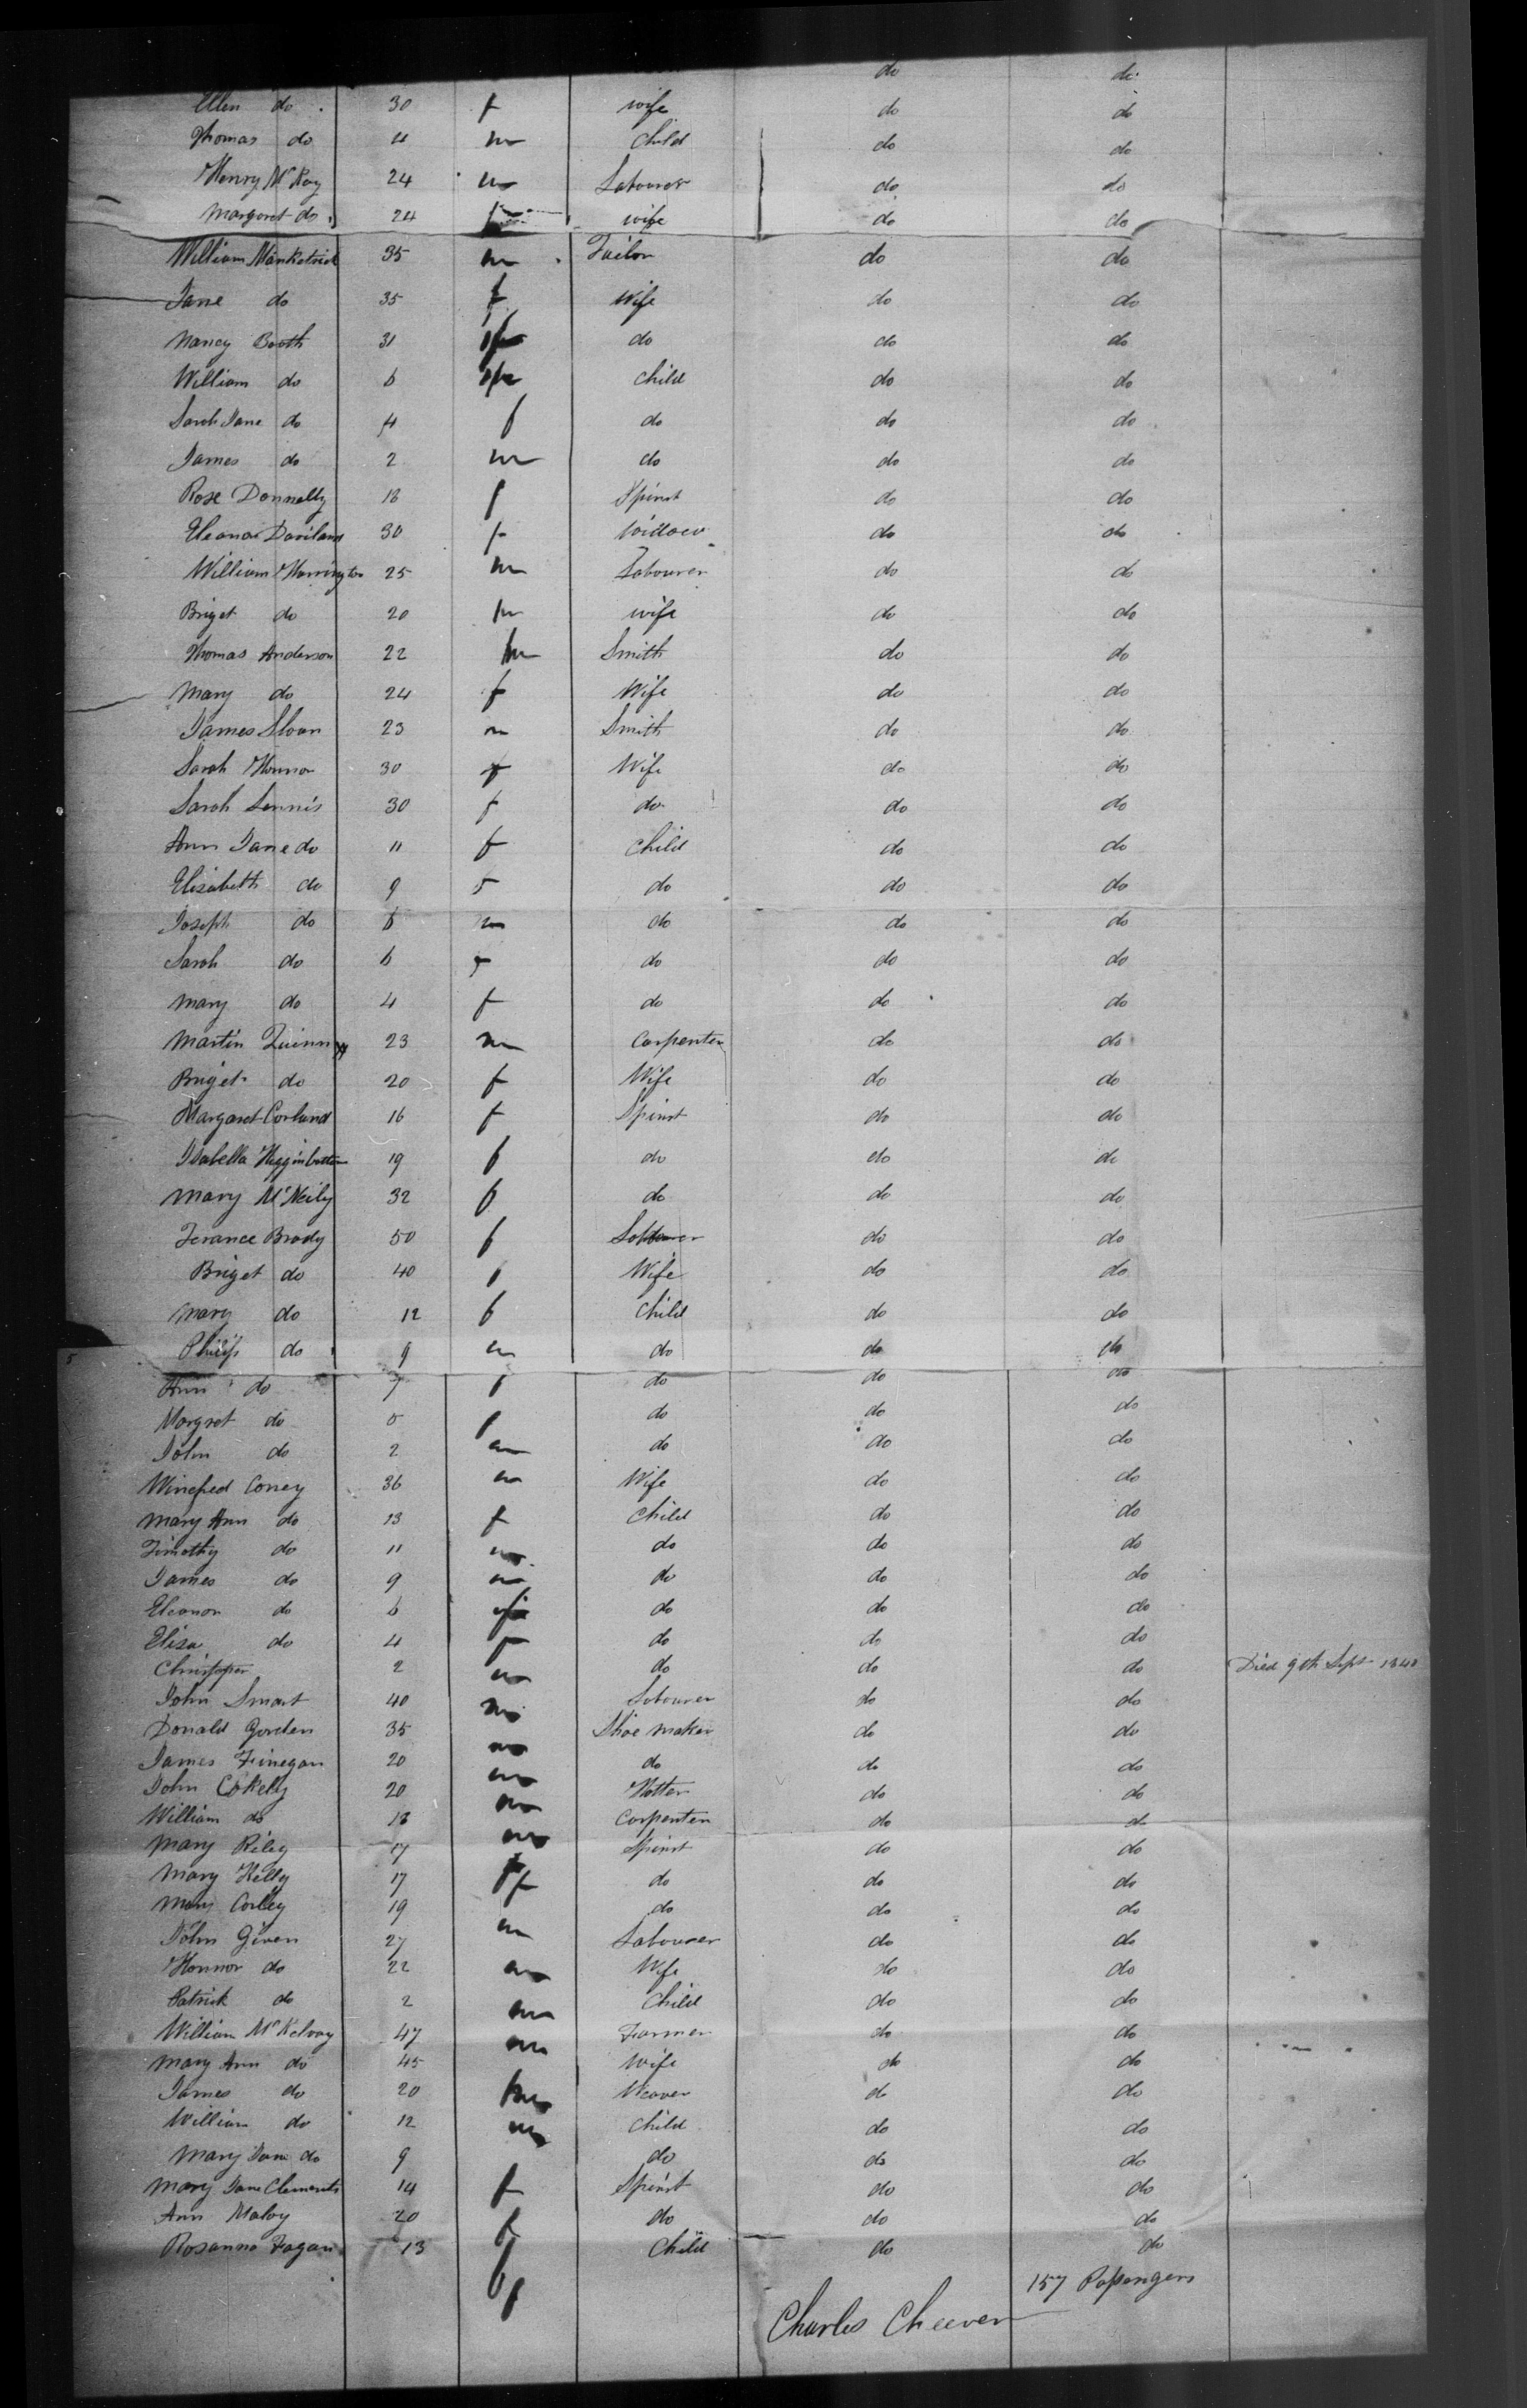 do do
Ellen do 30 f wife do do
Thomas do 4 m Child do do
Henry McKay 24 m Labourer do do
Margaret do 24 f wife do do
William 35 m Tailor do do
Jane do 35 f Wife do do
Nancy Booth 31 f do do do
William do 6 m Child do do
Sarah Jane do 4 f do do do
James do 2 m do do do
Rose Donnelly 18 f Spinst do do
Eleanor 30 f Widow do do
William Harrington 25 m Labourer do do
Briget do 20 wife do do
Thomas Anderson 22 m Smith do do
Mary do 24 f Wife do do
James Sloan 23 m Smith do do
Sarah 30 f Wife do do
Sarah Lennis 30 f do do do
Ann Jane do 11 f Child do do
Elizabeth do 9 f do do do
Joseph do 6 m do do do
Sarah do 6 f do do do
Mary do 4 f do do do
Martin Quinn 23 m Carpenter do do
Briget do 20 f Wife do do
Margaret Corland 16 f Spinst do do
Isabella Higginbottom 19 f do do do
Mary McNeily 32 f do do do
Terance Brady 50 f Labourer do do
Briget do 40 f Wife do do
Mary do 12 f Child do do
Philip do 9 m do do do
Ann do 7 f do do do
Margret do 5 f do do do
John do 2 m do do do
Winefred Coney 36 m Wife do do
Mary Ann do 13 f Child do do
Timothy do 11 m do do do
James do 9 m do do do
Eleonor do 6 f do do do
Eliza do 4 f do do do
Christopher 2 m do do do Died 9th Sept 1848
John Smart 40 m Labourer do do
Donald Gorden 35 m Shoe maker do do
James Finegan 20 m do do do
John 20 m Hatter do do
William do 18 m Carpenter do do
Mary Riley 17 f Spinst do do
Mary Kelly 17 f do do do
Mary Corley 19 do do do
John Given 27 m Labourer do do
Honnor do 22 m Wife do do
Patrick do 2 m Child do do
William McKelvay 47 m Farmer do do
Mary Ann do 45 Wife do do
James do 20 m Weaver do do
William do 12 m Child do do
Mary Jane do 9 do do do
Mary Jane Clements 14 f Spinst do do
Ann Maloy 20 f do do do
Rosanna Fagan 13 f Child do do
157 Passengers
Charles Cheever